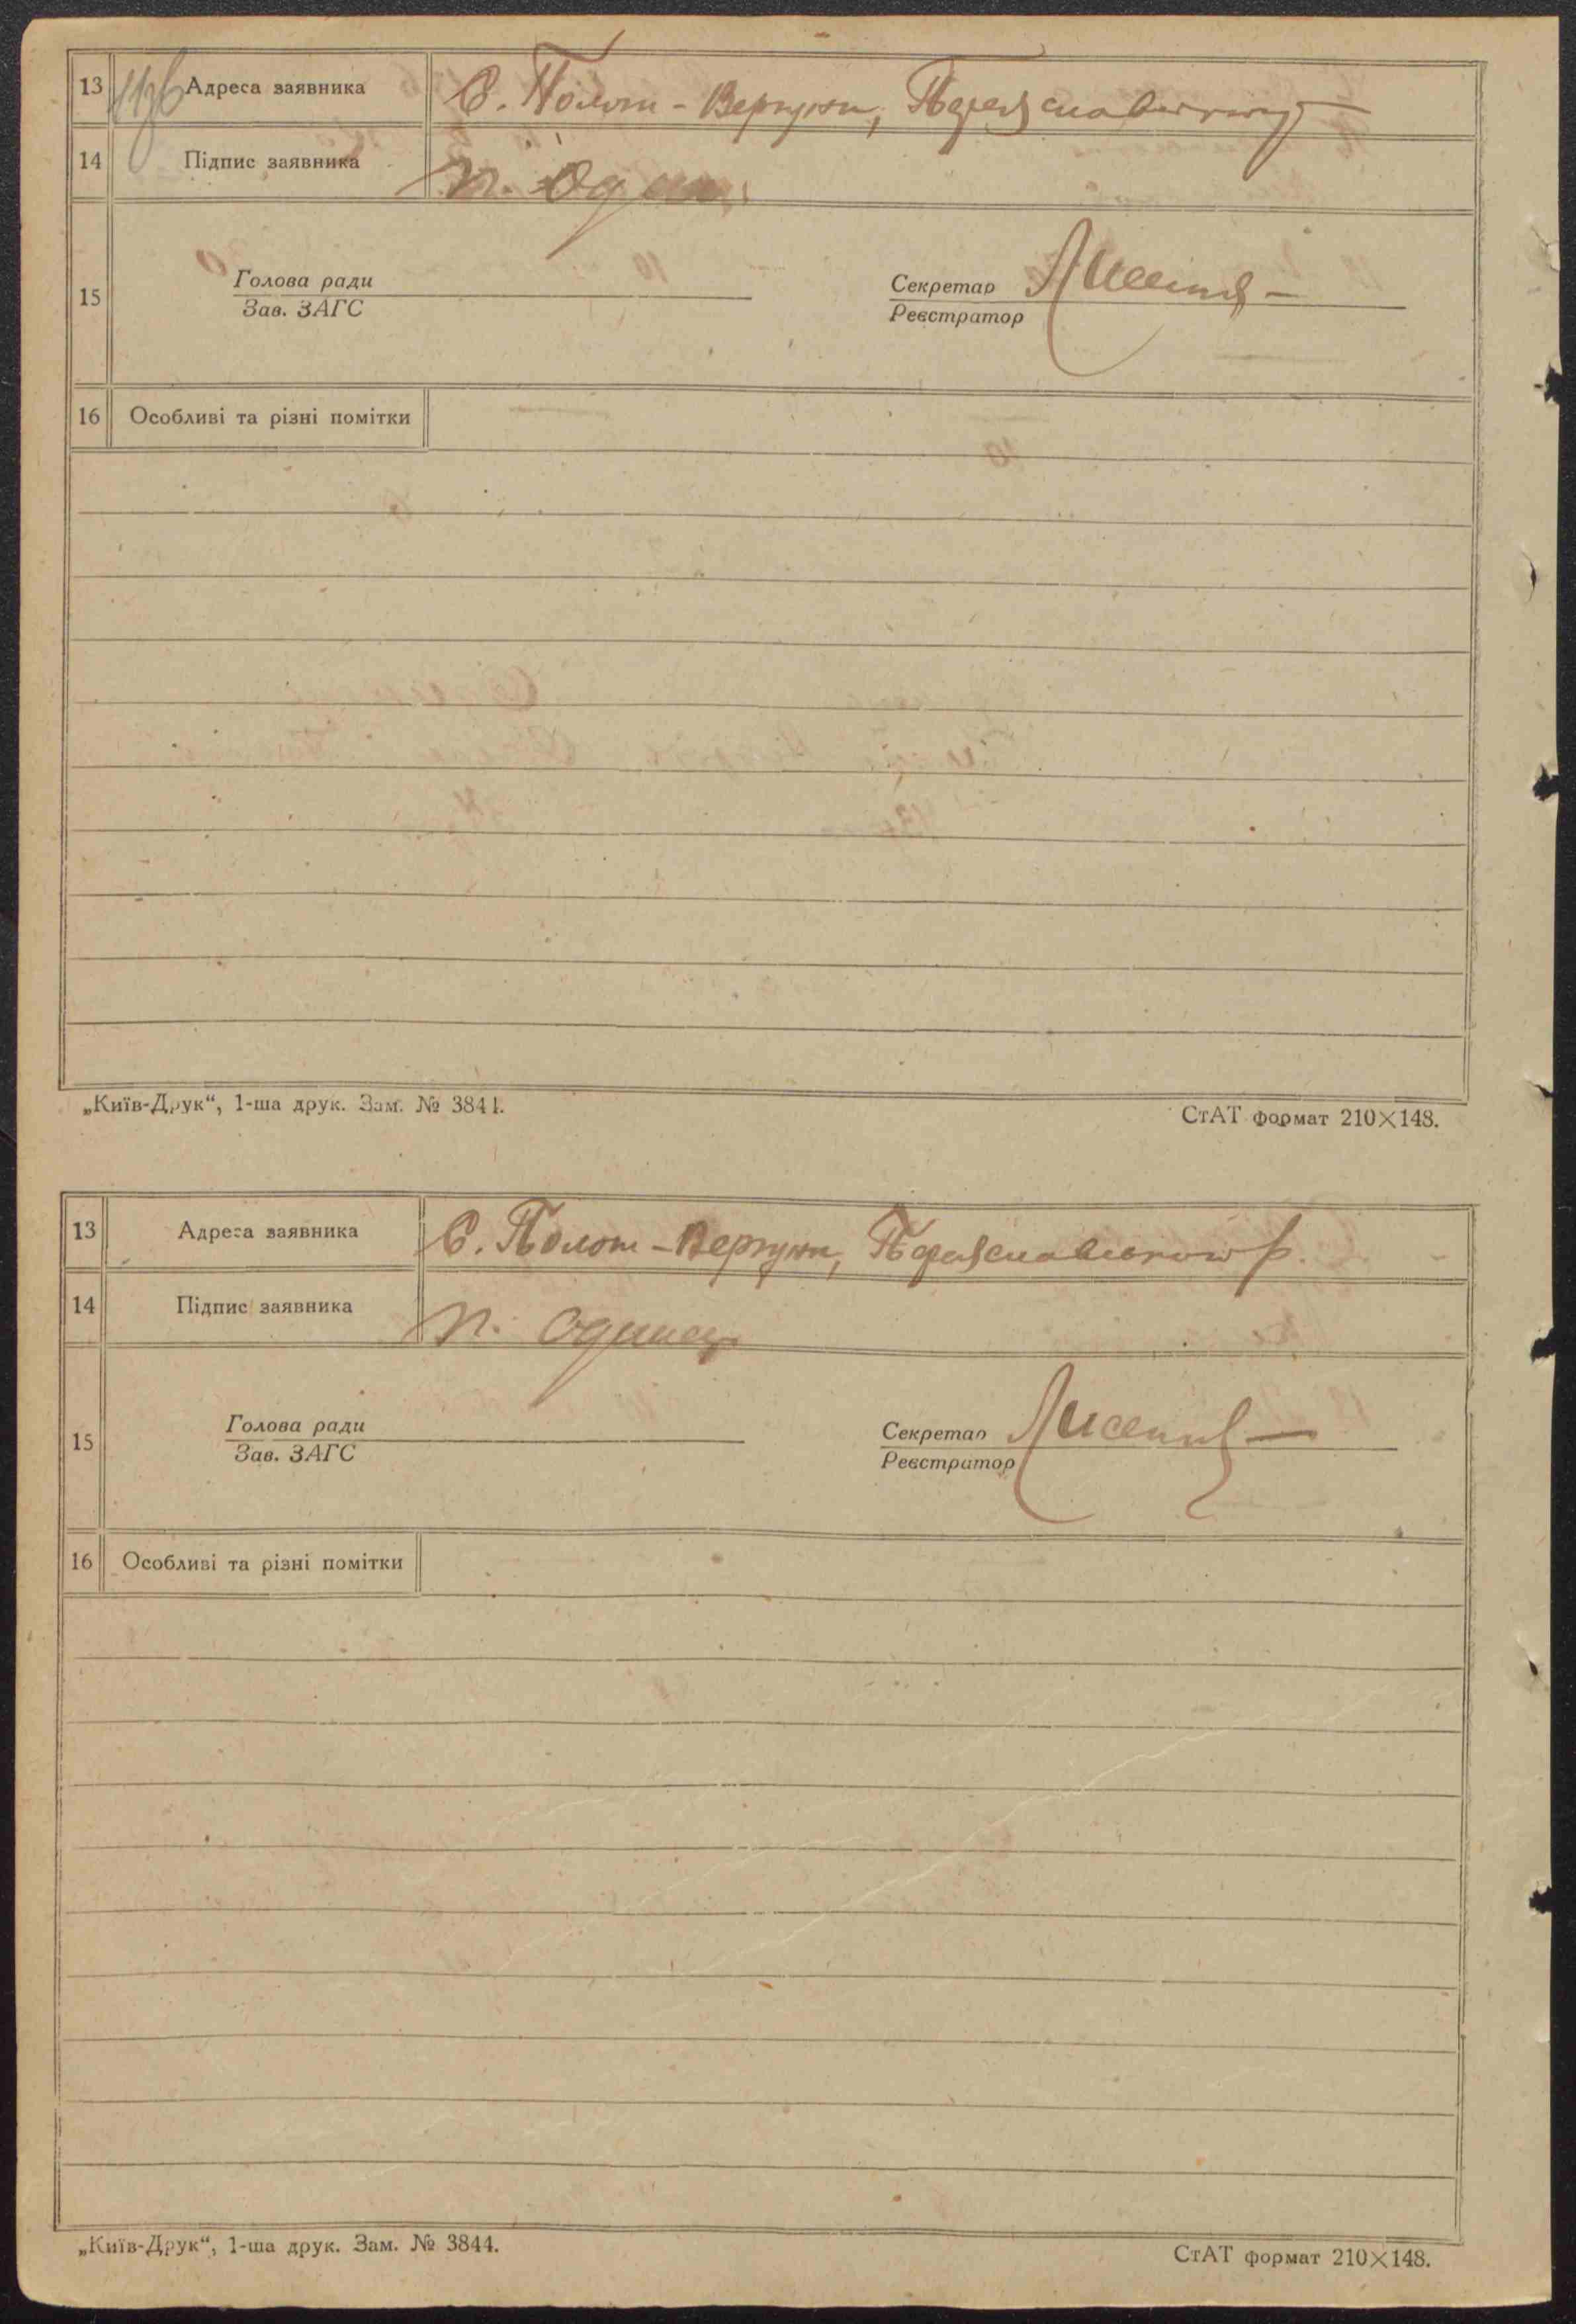 13 Адреса заявника С. Полом-Вергуни,
14 Підпис заявника П. Один
15 Голова ради Секретар
Зав. ЗАГС Реєстратор
16 Особливі та різні помітки
„Київ-Друк“, 1-ша друк. Зам. № 3844. СтАТ формат 210×148.
13 Адреса заявника С. Полот-Вергуни, Переяславського р.
14 Підпис заявника П. Одинець
15 Голова ради Секретар Лисенко
Зав. ЗАГС Реєстратор
16 Особливі та різні помітки
„Київ-Друк“, 1-ша друк. Зам. № 3844. СтАТ формат 210×148.